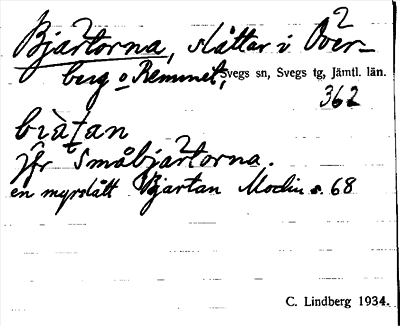 Bjärtorna, slåttar i Över-
berg o Remmet, Svegs sn, Svegs tg, Jämtl. län.
362
jfr Småbjärtorna.
en myrslått Bjartan Modin s. 68
C. Lindberg 1934.